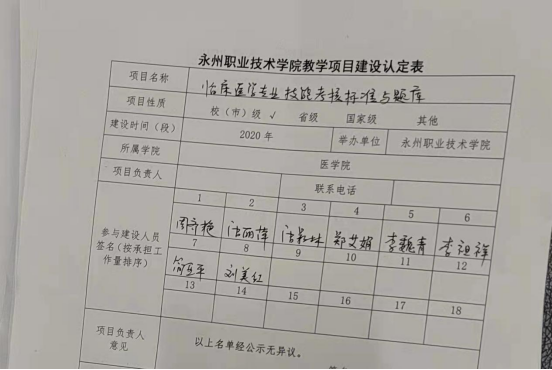 永州职业技术学院教学项目建设认定表
项目名称 临床医学专业技能考核标准与题库
项目性质 校(市)级 √ 省级 国家级 其他
建设时间(段) 2020年 举办单位 永州职业技术学院
所属学院 医学院
项目负责人 联系电话
参与建设人员签名(按承担工作量排序)
1 2 3 4 5 6
郑艾娟 李魏青 李祖祥
7 8 9 10 11 12
刘美红
13 14 15 16 17 18
项目负责人意见 以上名单经公示无异议。